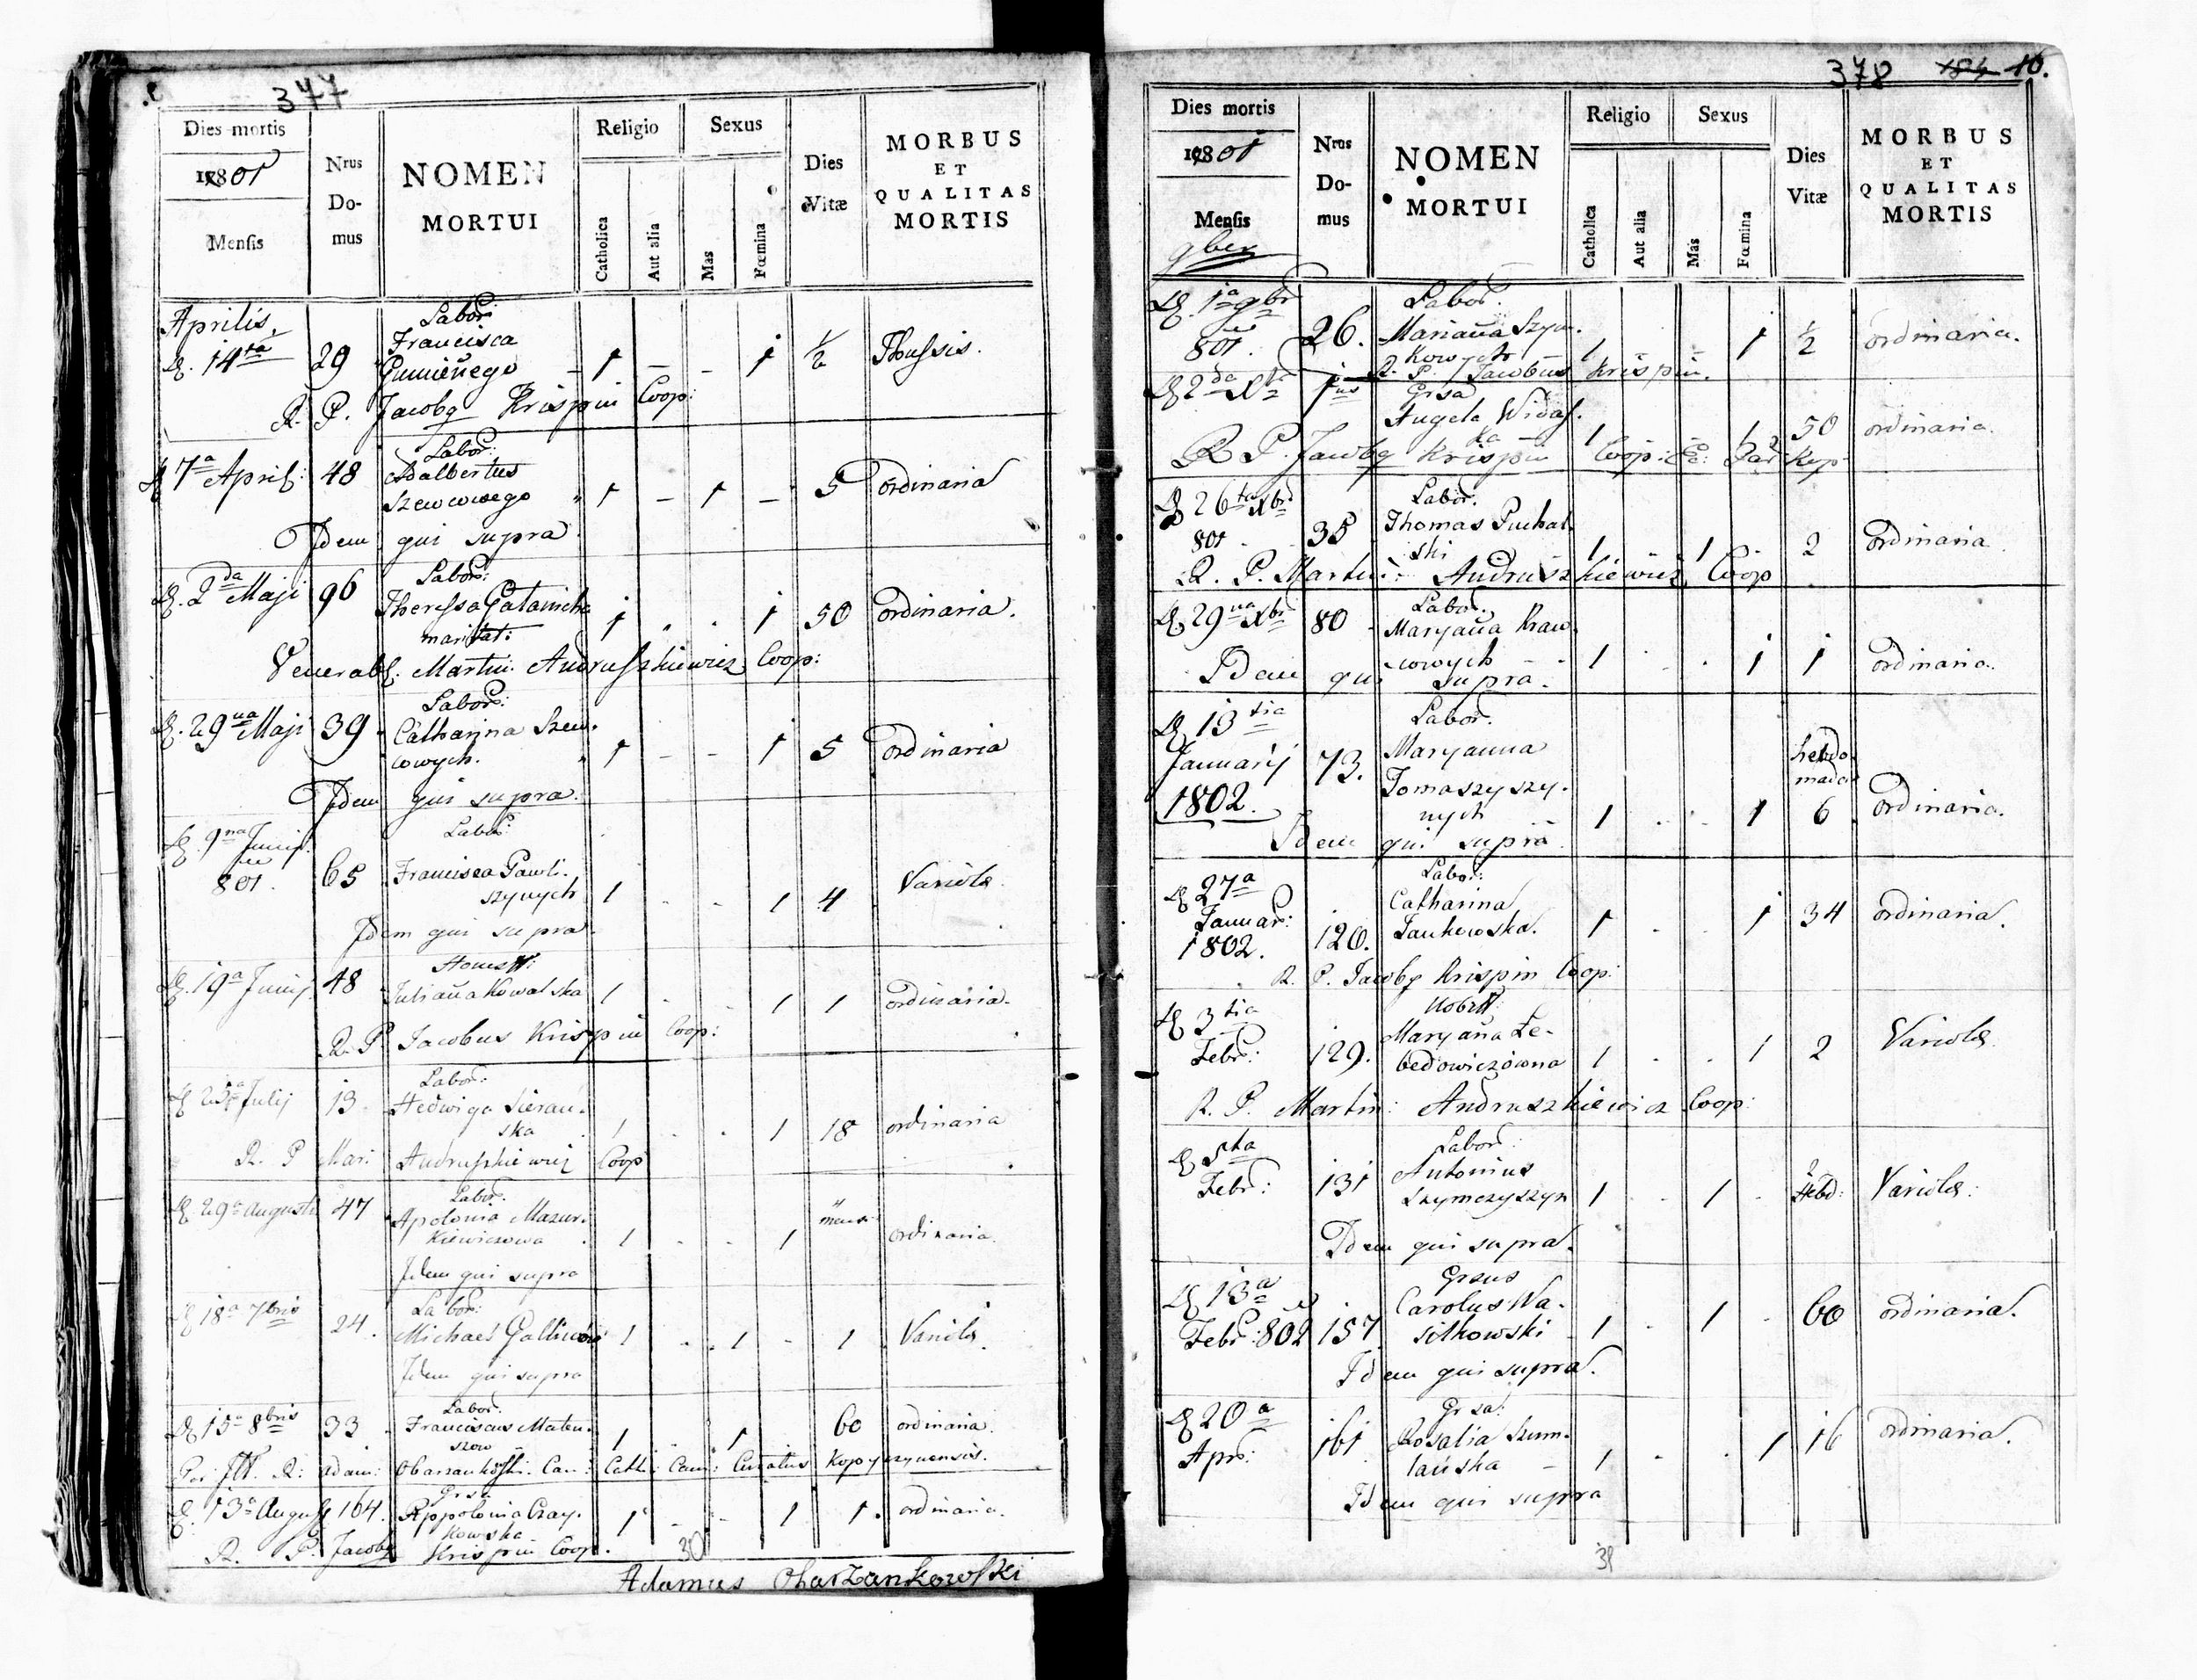 377
Dies mortis
1801
Mensis
Nrus
Do-
mus
NOMEN
MORTUI
Religio
Catholica
Aut alia
Sexus
Mas
Fœmina
Dies
Vitæ
MORBUS
ET
QUALITAS
MORTIS
Aprilis
D. 14ta 29 Labor: Francisca Gumienego 1 - - 1 1/2 Thussis.
R. P. Jacobg Krispin Coop:
7a April: 48 Labor: Adalbertus Szewcowego 1 - 1 - 5 ordinaria
Idem qui supra
D. 2da Maji 96 Labor: Theressa maritat: 1 . . 1 50 ordinaria.
Venerabl. Martin: Andruszkiewicz Coop:
D. 29na Maji 39 Labor: Catharina Szew-
cowych. 1 - - 1 5 ordinaria
Idem qui supra.
D. 9na Junij 801. 65 Labor: Francisca Pawli-
szynych 1 . . 1 4 Variola.
Idem qui supra
D. 19a Junij 48 Honest: Juliana Kowalska 1 . . 1 1 ordinaria.
R. P. Jacobus Krispin Coop:
D. 25a Julij 13 Labor: Hedwiga Sieran-
ska 1 . . 1 18 ordinaria
R. P. Mar: Andruszkiewicz Coop
D. 29a Augusti 47 Labor: Apolonia Mazur-
kiewiczowa 1 . . 1 mens: ordinaria.
Idem qui supra
D. 18a 7bris 24. Labor: Michael 1 . 1 - 1 Variola.
Idem qui supra
D. 15a 8bris 33 Labor: Franciscus Mateu-
szow 1 . 1 60 ordinaria.
R: Adam: Obarzankowski. Can: Cath: Cam: Curatus Kopyczynensis.
D. 13a August 164. Grsa Appolonia Czay-
kowska 1 - - 1 1. ordinaria.
R. P. Jacobg Krispin Coop.
30
Adamus Obarzankowski
378 184 10.
Dies mortis
1801
Mensis
9ber
Nros
Do-
mus
NOMEN
MORTUI
Religio
Catholica
Aut alia
Sexus
Mas
Fœmina
Dies
Vitæ
MORBUS
ET
QUALITAS
MORTIS
D. 1a 9br 801. 26. Labor: Mariana Szym-
kowych 1 - 1 1/2 ordinaria.
R. P. Jacobus Krispin.
D. 2da Xbr Grsa Angela Widaj-
ka 1 - 1 50 ordinaria.
R P. Jacobg Krispin Coop: Kop:
D. 26ta Xbr 801 35 Labor. Thomas Puchal-
ski 1 . 1 . 2 ordinaria
R. P. Martin: Andruszkiewicz Coop
D. 29na Xbr 80 Labor. Maryana Kraw-
cowych 1 . . 1 1 ordinaria.
Idem qui supra.
D. 13tia Januarij 1802. 73. Labor. Maryanna
Tomaszyszy-
nych 1 . . 1 hebdo-
mada 6 ordinaria.
Idem qui supra
D. 27a Januar: 1802. 120. Labor: Catharina
Jankowska. 1 . . 1 34 ordinaria.
R. P. Jacobg Krispin Coop:
D. 3tia Febr: 129. Nobilis: Maryana Łe-
bedowiczówna 1 . . 1 2 Variola.
R. P. Martin: Andruszkiewicz Coop:
D. 5ta Febr: 131 Labor: Antonius
Szymczyszyn 1 . 1 . 2 Hebd: Variola:
Idem qui supra.
D. 13a Febr: 802 157 Grsus Carolus Wa-
silkowski 1 . 1 . 60 ordinaria.
Idem qui supra.
D. 20a Apr: 161 Grsa: Rosalia Szum-
lańska 1 . . 1 16 ordinaria.
Idem qui supra
31